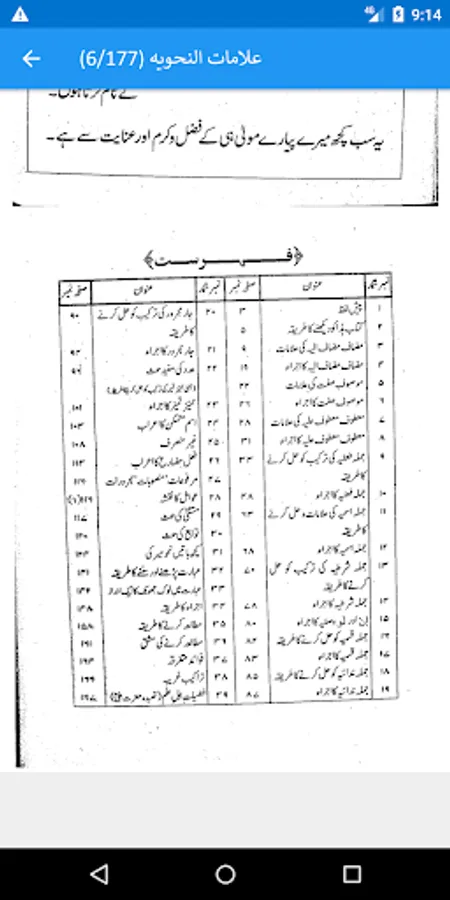 9:14
علامات النحويه (6/177)
کے نام کرتا ہوں۔
یہ سب کچھ میرے پیارے مولیٰ ہی کے فضل و کرم اور عنایت سے ہے۔
﴿فہرست﴾
نمبر شمار عنوان صفحہ نمبر نمبر شمار عنوان صفحہ نمبر
۱ پیش لفظ ۳ ۲۰ جار مجرور کی ترکیب کو حل کرنے کا طریقہ ۹۰
۲ کتاب ہذا کو دیکھنے کا طریقہ ۵
۳ مضاف مضاف الیہ کی علامات ۹ ۲۱ جار مجرور کا اجراء ۹۲
۴ مضاف مضاف الیہ کا اجراء ۱۹ ۲۲ عدد کی مفید بحث
۵ موصوف صفت کی علامات ۲۲
۶ موصوف صفت کا اجراء ۲۶ ۲۳ ممیز تمیز کا اجراء ۱۰۱
۷ معطوف معطوف علیہ کی علامات ۲۸ ۲۴ اسم متمکن کا اعراب ۱۰۳
۸ معطوف معطوف علیہ کا اجراء ۳۱ ۲۵ غیر منصرف ۱۰۸
۹ جملہ فعلیہ کی ترکیب کو حل کرنے کا طریقہ ۳۳ ۲۶ فعل مضارع کا اعراب ۱۱۳
۲۷ مرفوعات منصوبات مجرورات
۱۰ جملہ فعلیہ کا اجراء ۳۸ ۲۸ عوامل کا نقشہ
۱۱ جملہ اسمیہ کی علامات و حل کرنے کا طریقہ ۶۳ ۲۹ مستثنیٰ کی بحث ۱۱۷
۳۰ توابع کی بحث ۱۲۰
۱۲ جملہ اسمیہ کا اجراء ۶۸ ۳۱ کچھ باتیں نحو میر کی
۱۳ جملہ شرطیہ کی ترکیب کو حل کرنے کا طریقہ ۷۰ ۳۲ عبارت پڑھنے اور سننے کا طریقہ ۱۳۱
۳۳
۱۴ جملہ شرطیہ کا اجراء ۷۸ ۳۴ اجراء کا طریقہ ۱۳۸
۱۵ ۸۰ ۳۵ مطالعہ کرنے کا طریقہ ۱۵۸
۱۶ جملہ قسمیہ کو حل کرنے کا طریقہ ۸۲ ۳۶ مطالعہ کرنے کی مشق ۱۶۱
۱۷ جملہ قسمیہ کا اجراء ۸۳ ۳۷ فوائد متفرقہ ۱۶۳
۱۸ جملہ ندائیہ کو حل کرنے کا طریقہ ۸۵ ۳۸ تراکیب غریبہ
۱۹ جملہ ندائیہ کا اجراء ۸۷ ۳۹ فضیلت اہل علم